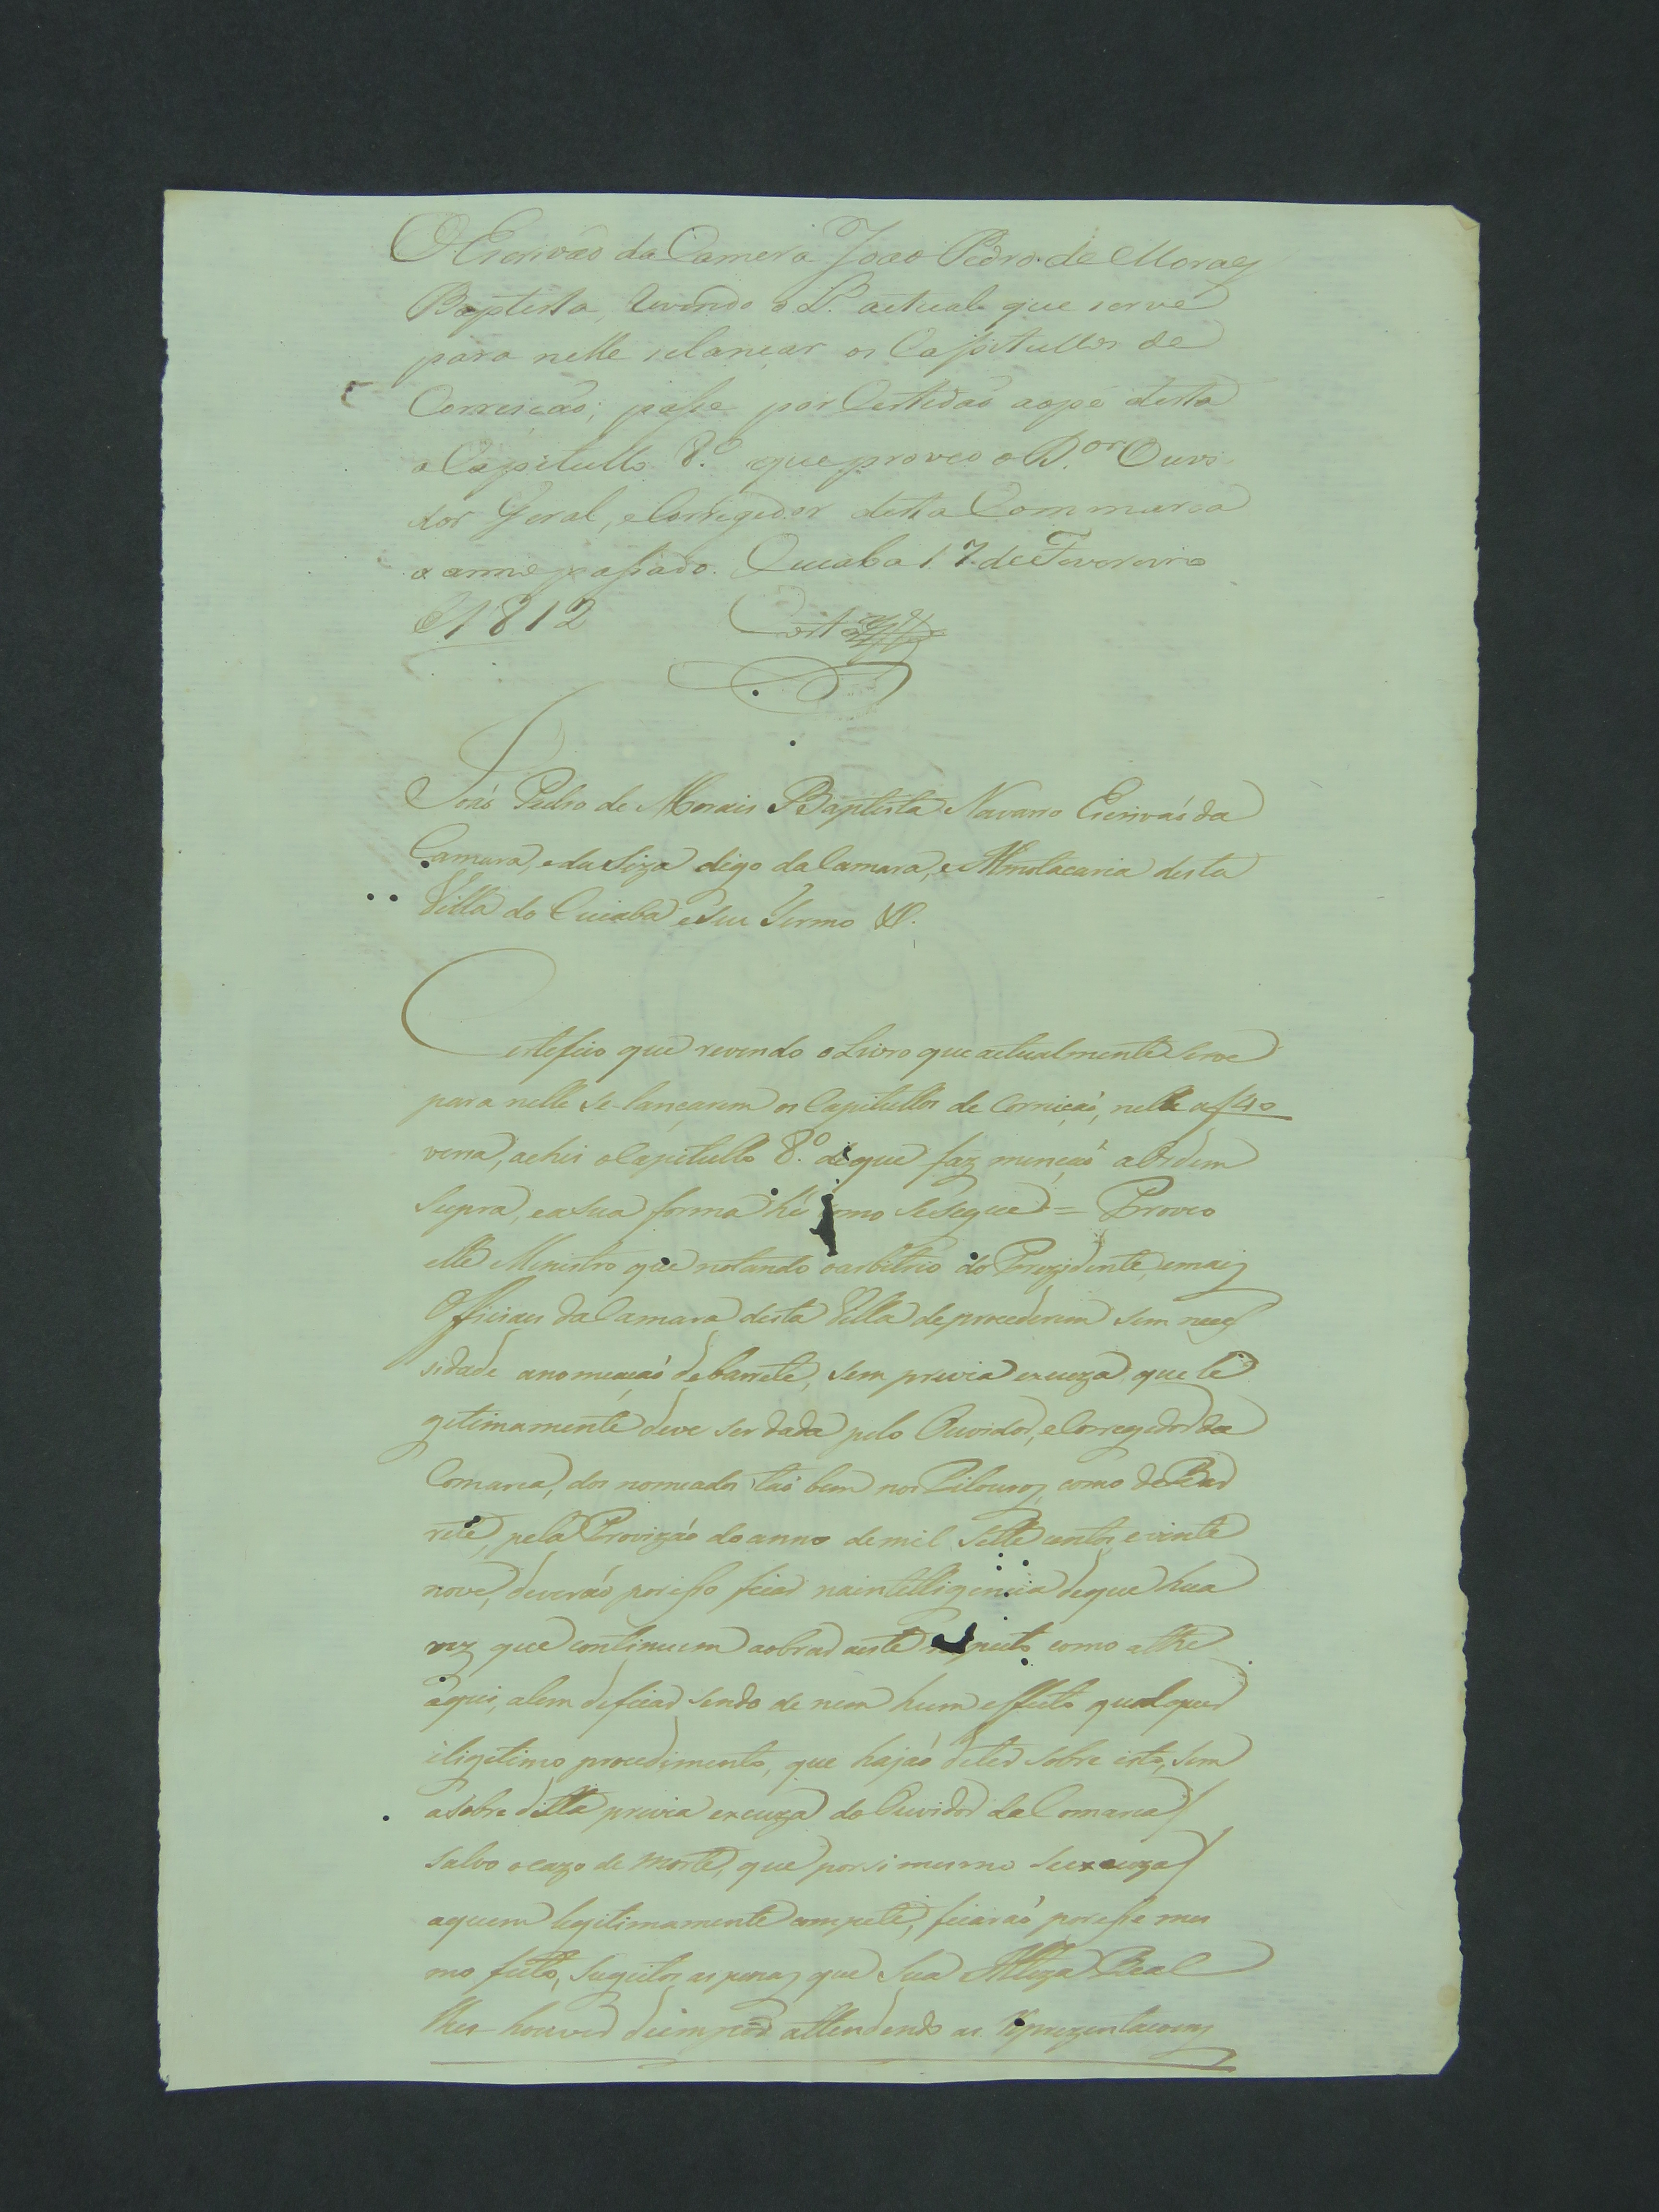 O Escrivão da Camera João Pedro de Moraes
Baptista, revendo o L.º actual que serve
para nelle selançar os Capitullos de
Correição; passe por Certidaõ aopé desta
o Capitullo 8.º que proveo o D.or Ouvi
dor Geral, e Corregedor desta Commarca
o anno passado. Cuiaba 17 de Fevereiro
d 1812
Joaõ Pedro de Morais Baptista Navarro Escrivaõ da
Camara, eda Siza digo da Camara, e Almotacaria desta
Villa do Cuiabá eseu Termo &.
Certefico que revendo o Livro que actualmente serve
para nelle se lançarem os Capitullos de Correiçaõ, nelle a f 40
verso, achei o Capitullo 8.º deque faz mençaõ a Ordem
Supra, easua forma hé como sesegue = Proveo
elle Ministro que notando o arbitrio do Prezidente, emais
Officiaes da Camara desta Villa deprocederem sem neces
sidade anomeaçaõ debarrete, sem previa excuza, que le
gitimamente deve ser dada pelo Ouvidor, e Corregedor da
Comarca, dos nomeados taõ bem nos Pilouros, como de Bar
rete, pela Provizaõ do anno demil sette centos, e vinte
nove, deveraõ porisso ficar naintelligencia deque hua
vez que continuem aobrar aeste respeito como athe
aqui, alem deficar sendo de nem hum effeito qualquer
iligitimo procedimento, que hajaõ deter sobre isto, sem
asobre ditta previa excuza do Ouvidor da Comarca/
salvo ocazo de morte, que porsi mesmo seexcuza/
aquem legitimamente compete, ficaraõ poresse mes
mo feito, sugeitos as penas que Sua Alteza Real
lhes houver deimpôr attendendo as reprezentaçoens